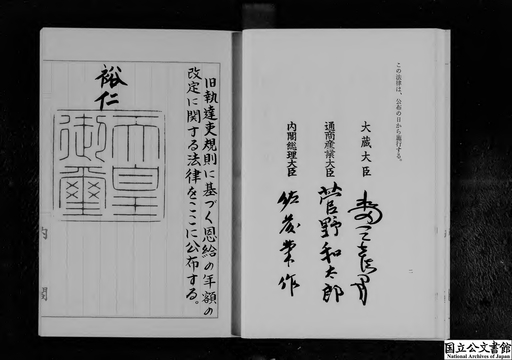 この法律は、公布の日から施行する。
大蔵大臣
通商産業大臣 菅野和太郎
内閣総理大臣 佐藤栄作
二
旧執達吏規則に基づく恩給の年額の
改定に関する法律をここに公布する。
裕仁
天皇
御璽
内閣
国立公文書館
National Archives of Japan